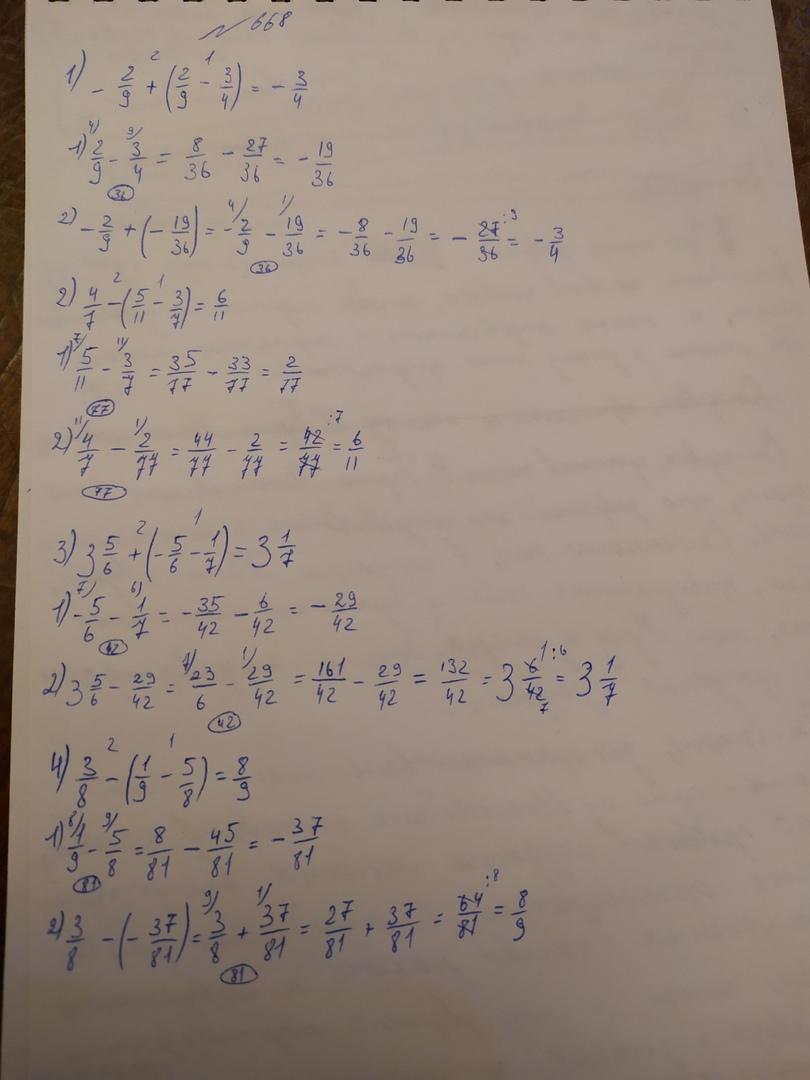 № 668
1) - 2/9 + (2/9 - 3/4) = - 3/4
1) 2/9 - 3/4 = 8/36 - 27/36 = - 19/36
2) - 2/9 + (- 19/36) = - 2/9 - 19/36 = - 8/36 - 19/36 = - 27/36 = - 3/4
2) 4/7 - (5/11 - 3/7) = 6/11
1) 5/11 - 3/7 = 35/77 - 33/77 = 2/77
2) 4/7 - 2/77 = 44/77 - 2/77 = 42/77 = 6/11
3) 3 5/6 + (- 5/6 - 1/7) = 3 1/7
1) - 5/6 - 1/7 = - 35/42 - 6/42 = - 29/42
2) 3 5/6 - 29/42 = 23/6 - 29/42 = 161/42 - 29/42 = 132/42 = 3 6/42 = 3 1/7
4) 3/8 - (1/9 - 5/8) = 8/9
1) 1/9 - 5/8 = 8/81 - 45/81 = - 37/81
2) 3/8 - (- 37/81) = 3/8 + 37/81 = 27/81 + 37/81 = 64/81 = 8/9